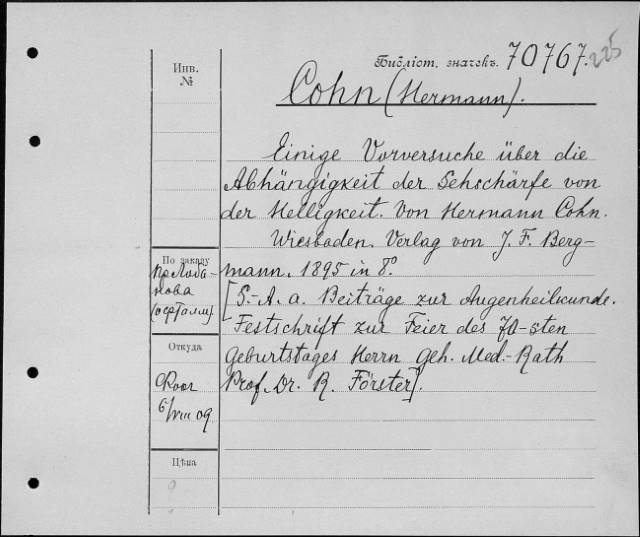 Инв.
№
Библіот. значекъ. 70767.
225
Cohn (Hermann).
Einige Vorversuche über die
Abhängigkeit der Sehschärfe von
der Helligkeit. Von Hermann Cohn.
Wiesbaden. Verlag von J. F. Berg-
mann. 1895 in 8°.
[S.-A. a. Beiträge zur Augenheilkunde.
Festschrift zur Feier des 70-sten
Geburtstages Herrn Geh. Med.-Rath
Prof. Dr. R. Förster].
По заказу
пр Лоба-
нова
(офталм).
Откуда
6/VIII 09
Цѣна